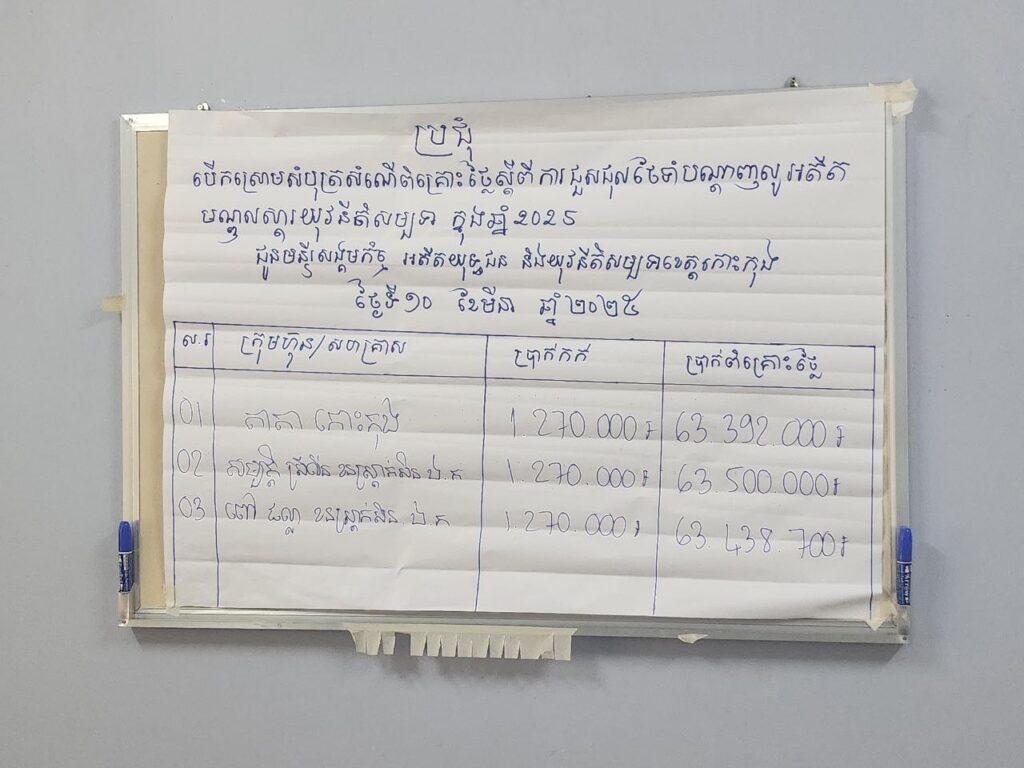 ប្រជុំ
បើកស្រោមសំបុត្រសំណើពិគ្រោះថ្លៃស្តីពី ការជួសជុលថែទាំបណ្តាញលូ អតីត
មណ្ឌលស្តារយុវនីតិសម្បទា ក្នុងឆ្នាំ ២០២៥
ជូនមន្ទីរសង្គមកិច្ច អតីតយុទ្ធជន និងយុវនីតិសម្បទាខេត្តកោះកុង
ថ្ងៃទី ១០ ខែមីនា ឆ្នាំ ២០២៥
ល.រ ក្រុមហ៊ុន/សហគ្រាស ប្រាក់កក់ ប្រាក់ពិគ្រោះថ្លៃ
01 តាតា កោះកុង 1.270.000៛ 63.392.000៛
02 សម្បត្តិ ខនស្ត្រាក់សិន ឯ.ក 1.270.000៛ 63.500.000៛
03 ពៅ ខនស្ត្រាក់សិន ឯ.ក 1.270.000៛ 63.438.700៛